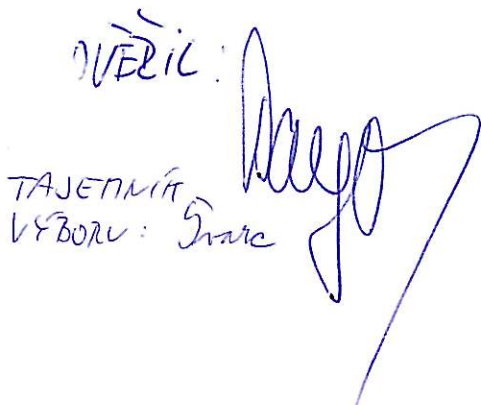 OVĚŘIL:
TAJEMNÍK
VÝBORU: Švarc